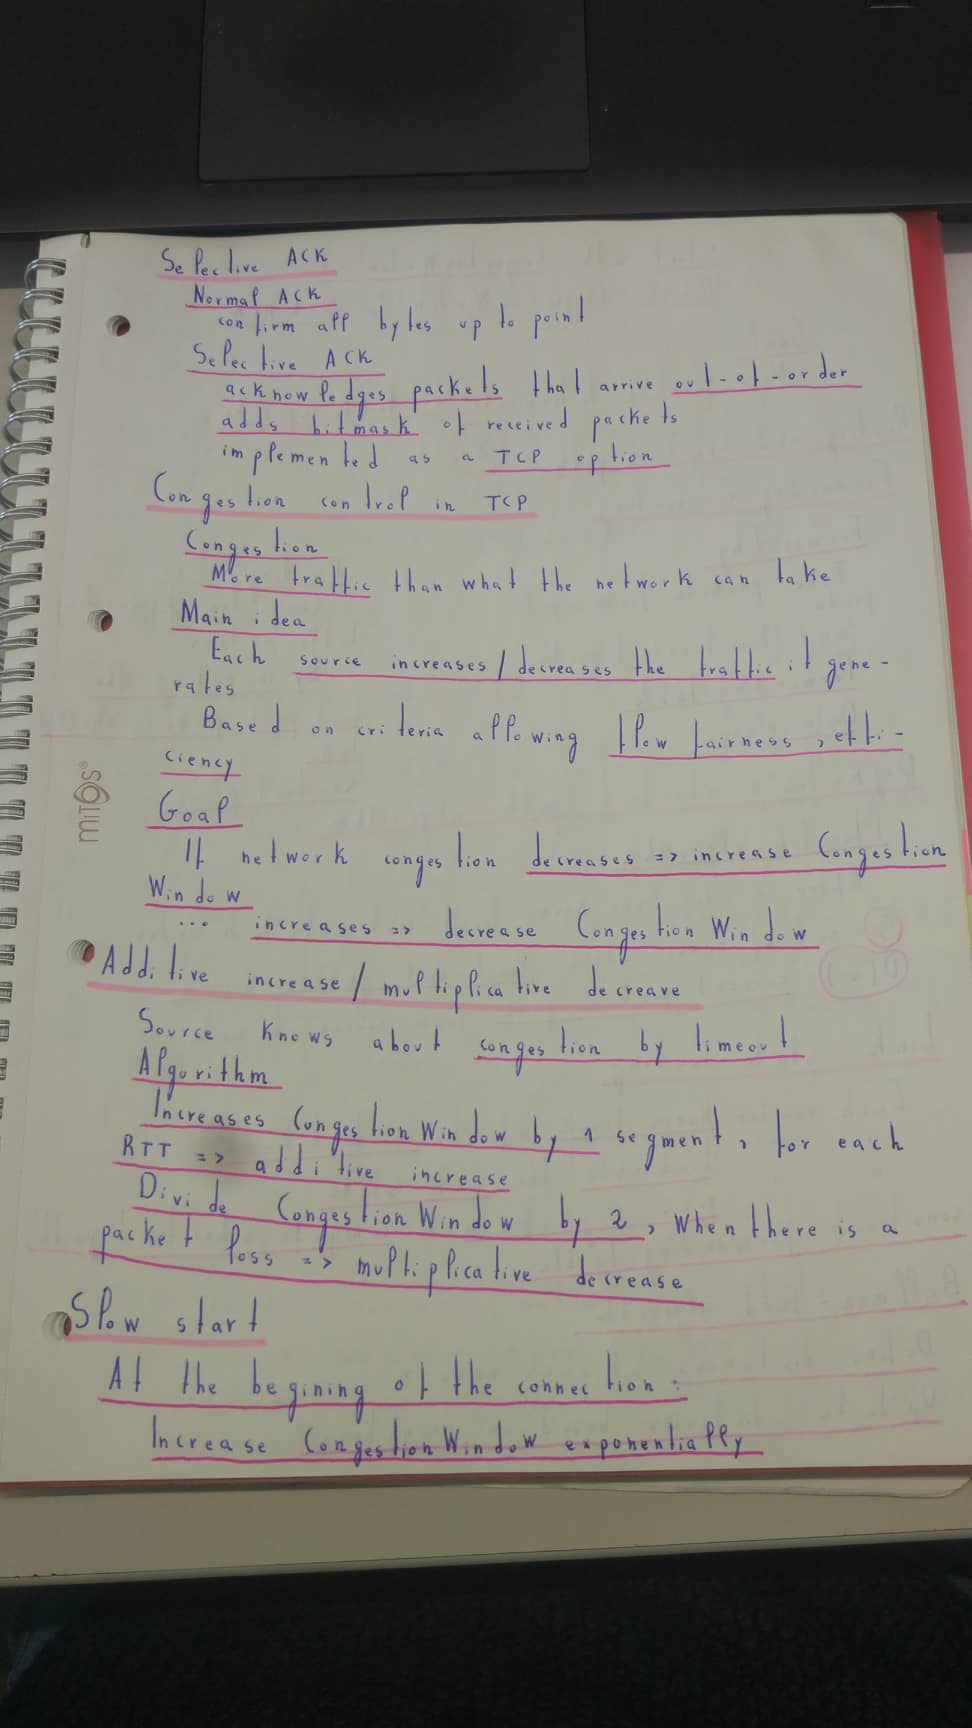 Selective ACK
Normal ACK
confirm all bytes up to point
Selective ACK
acknowledges packets that arrive out-of-order
adds bitmask of received packets
implemented as a TCP option
Congestion control in TCP
Congestion
More traffic than what the network can take
Main idea
Each source increases/decreases the traffic it gene-
rates
Based on criteria allowing flow fairness, effi-
ciency
Goal
If network congestion decreases => increase Congestion
Window
... increases => decrease CongestionWindow
Additive increase/multiplicative decreave
Source knows about congestion by timeout
Algorithm
Increases CongestionWindow by 1 segment, for each
RTT => additive increase
Divide CongestionWindow by 2, when there is a
packet loss => multiplicative decrease
Slow start
At the begining of the connection:
Increase CongestionWindow exponentially
miTOS®